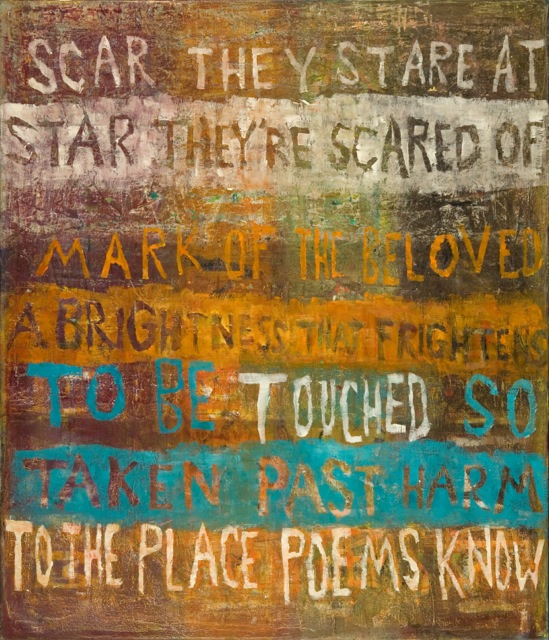 SCAR THEY STARE AT
STAR THEY'RE SCARED OF
MARK OF THE BELOVED
A BRIGHTNESS THAT FRIGHTENS
TO BE TOUCHED SO
TAKEN PAST HARM
TO THE PLACE POEMS KNOW